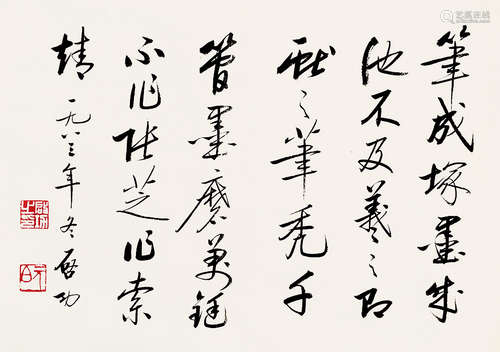 筆成塚墨成
池不及羲之即
献之筆秃千
管墨磨萬铤
不作张芝作索
靖 一九八三年冬启功